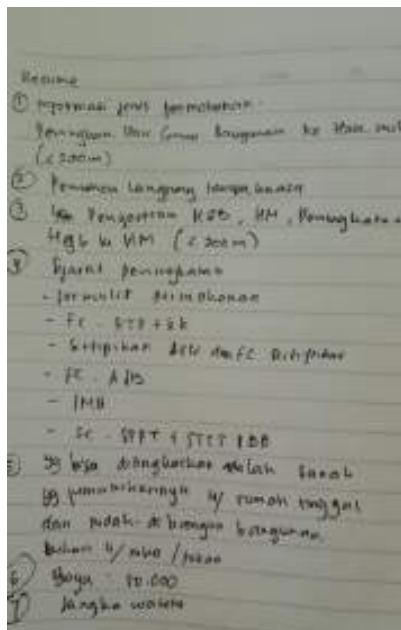 Resume
① Informasi jenis permohonan.
Peningkatan Hak Guna Bangunan ke Hak milik
(< 200 m)
② Pemohon langsung tanpa kuasa
③ Pengertian HGB, HM, Peningkatan
HGB ke HM (< 200 m)
4 Syarat peningkatan
- formulir permohonan
- FC. KTP + KK
- Sertipikat Asli dan FC Sertipikat
- FC. AJB
- IMB
- FC. SPPT + STTS PBB
5 yg bisa ditingkatkan adalah tanah
yg pemanfaatannya u/ rumah tinggal
dan sudah di bangun bangunan
bukan u/ ruko / tokoh
6 Biaya : 50.000
7 Jangka waktu